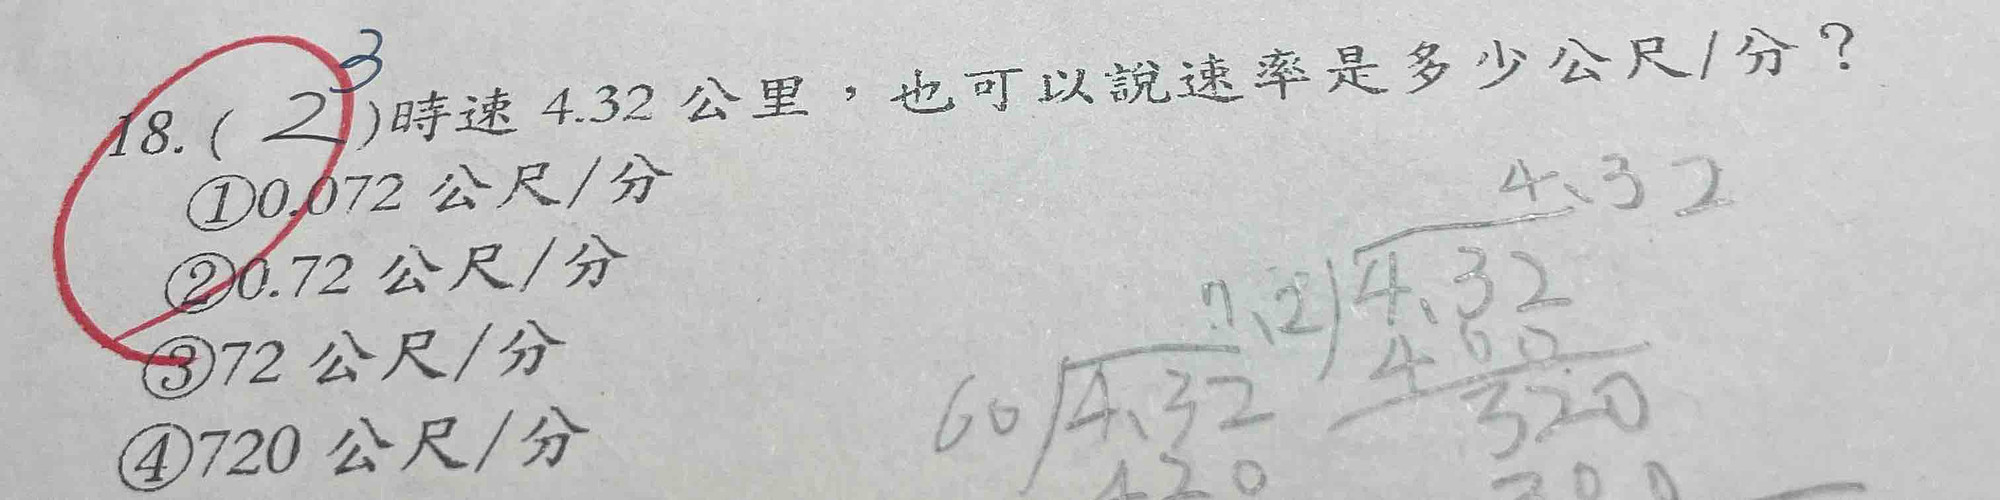 3
18. ( 2 )時速 4.32 公里，也可以說速率是多少公尺/分？
①0.072 公尺/分
②0.72 公尺/分
③72 公尺/分
④720 公尺/分
4.32
4.32
400
320
300
7.2
60 4.32
420